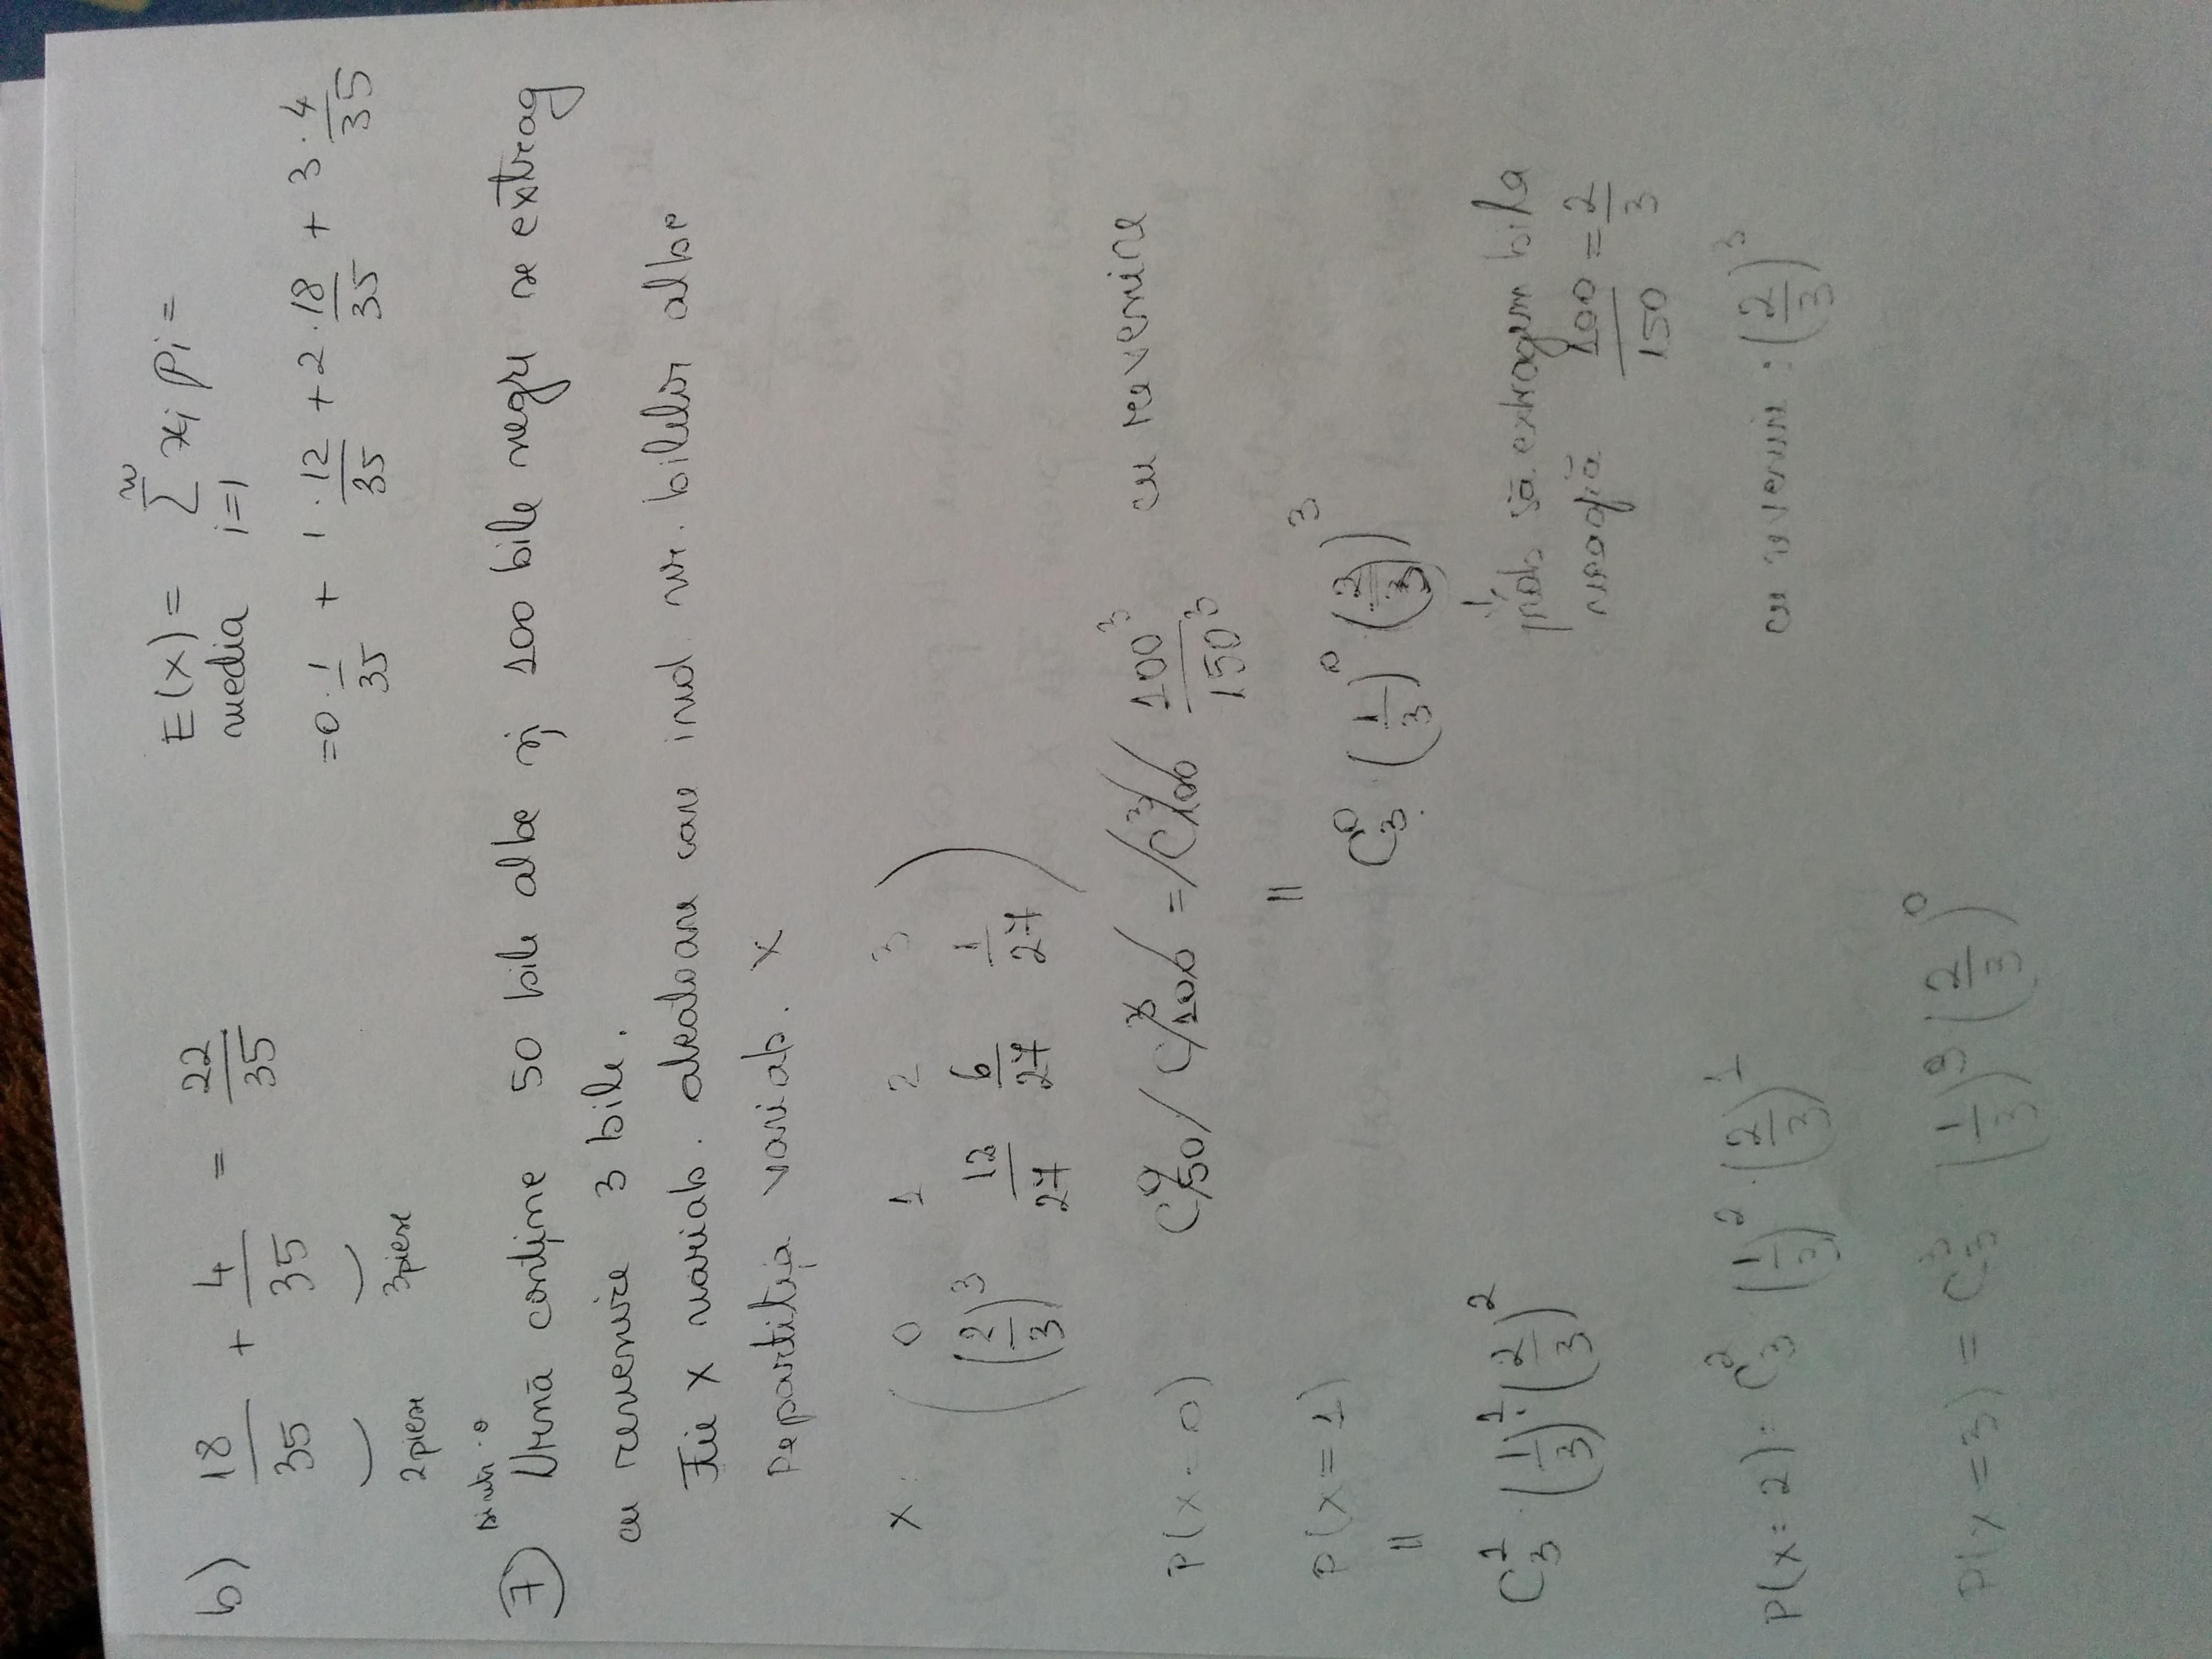 b) 18/35 + 4/35 = 22/35
2 piese 3 piese
E(x) = Σ xi pi =
media i=1 n
=0 · 1/35 + 1 · 12/35 + 2 · 18/35 + 3 · 4/35
dintr-o
7) Urnă conține 50 bile albe și 100 bile negre se extrag
cu revenire 3 bile.
Fie X variab. aleatoare care ind. nr. bilelor albe
Repartiția variab. X
X: ( 0 1 2 3 )
( (2/3)^3 12/27 6/27 1/27 )
P(x=0) C⁰50 C³100 = C³100 100³/150³ cu revenire
=
C₃⁰ · (1/3)⁰ (2/3)³
P(x=1)
=
C₃¹ · (1/3)¹ · (2/3)²
↓
prob să extragem bila
neagră 100/150 = 2/3
P(x=2) = C₃² (1/3)² · (2/3)¹
cu revenire : (2/3)³
P(x=3) = C₃³ · (1/3)³ (2/3)⁰